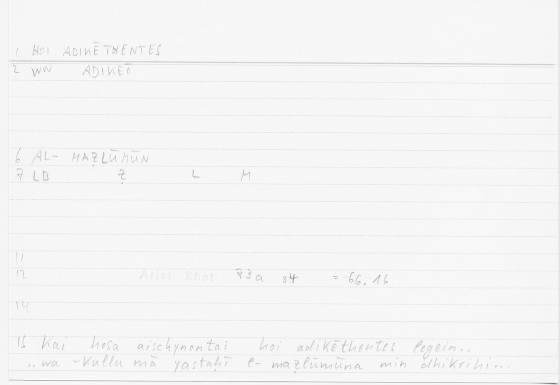 1 HOI ADIKĒTHENTES
2 WW ADIKEŌ
6 AL- MAẒLŪMŪN
7 LB Ẓ L M
11
12 Arist Rhet 73a 34 = 66.16
14
15 kai hosa aischynontai hoi adikēthentes legein..
..wa -kullu mā yastaḥī l- maẓlūmūna min dhikrihi...